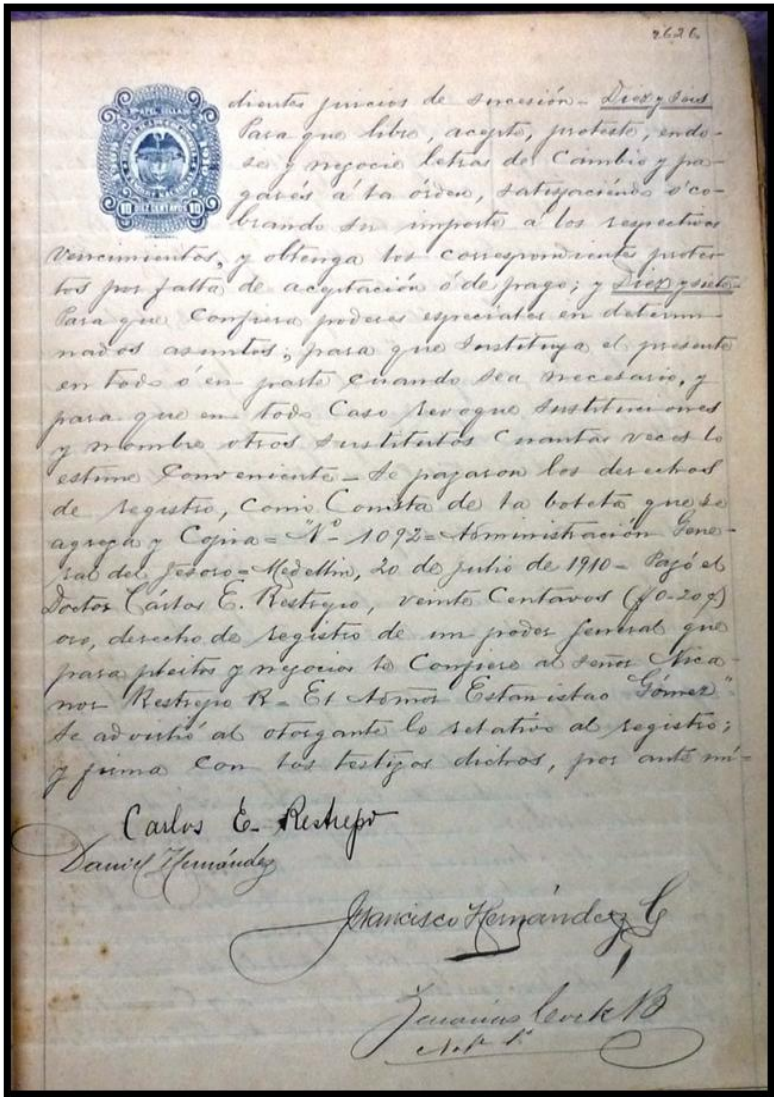 2626
dientes juicios de sucesión - Diez y seis
Para que libre, acepte, proteste, endo-
se y negocie letras de Cambio y pa-
garés á la órden, satisfaciéndo ó co-
brando su importe á los respectivos
vencimientos, y obtenga los correspondientes protes-
tos por falta de aceptación ó de pago; y Diez y siete -
Para que Confiera poderes especiales en determi-
nados asuntos; para que sustituya el presente
en todo ó en parte cuando sea necesario, y
para que en todo Caso revoque sustituciones
y nombre otros sustitutos Cuantas veces lo
estime Conveniente - Se pagaron los derechos
de registro, como Consta de la boleta que se
agrega y Copia = "Nº - 1092 = Administración Gene-
ral del Tesoro = Medellin, 20 de julio de 1910 - Pagó el
Doctor Cárlos E. Restrepo, veinte Centavos ($0-20 )
oro, derecho de registro de un poder general que
para pleitos y negocios le Confiere al señor Nica-
nor Restrepo R - El Admor Estanislao Gómez"
Se advirtió al otorgante lo relativo al registro;
y firma Con los testigos dichos, por ante mí -
Carlos E. Restrepo
Daniel Hernández
Francisco Hernández G